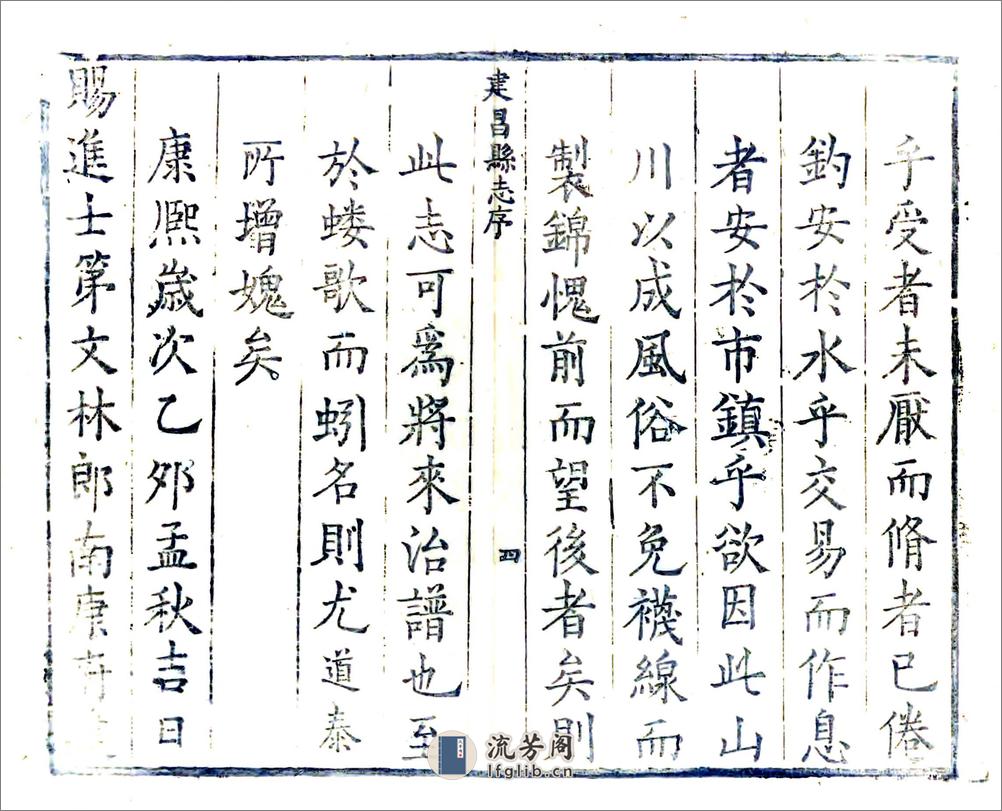 乎受者未厭而脩者已倦
釣安於水乎交易而作息
者安於市鎮乎欲因此山
川以成風俗不免襪線而
製錦愧前而望後者矣則
建昌縣志序
四
此志可爲將來治譜也至
於蝼歌而蚓名則尤道泰
所增媿矣
康熈歳次乙夘孟秋吉日
賜進士第文林郎南康府
流芳阁
lfglib.cn